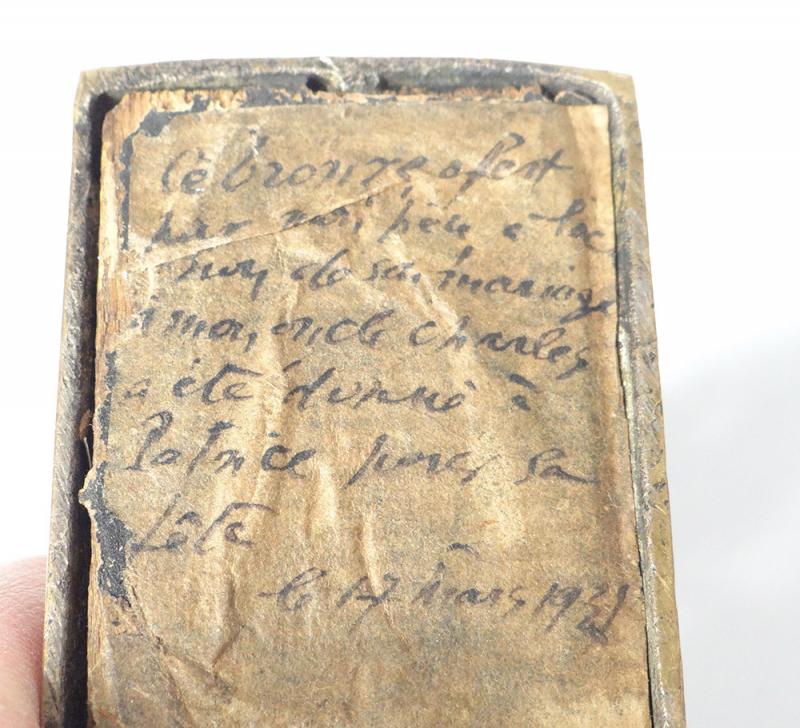 Ce bronze ofert
par mon père à l'oc
de son mariage
à mon oncle Charles
a été donné à
Patrice pour sa
fête
le 17 mars